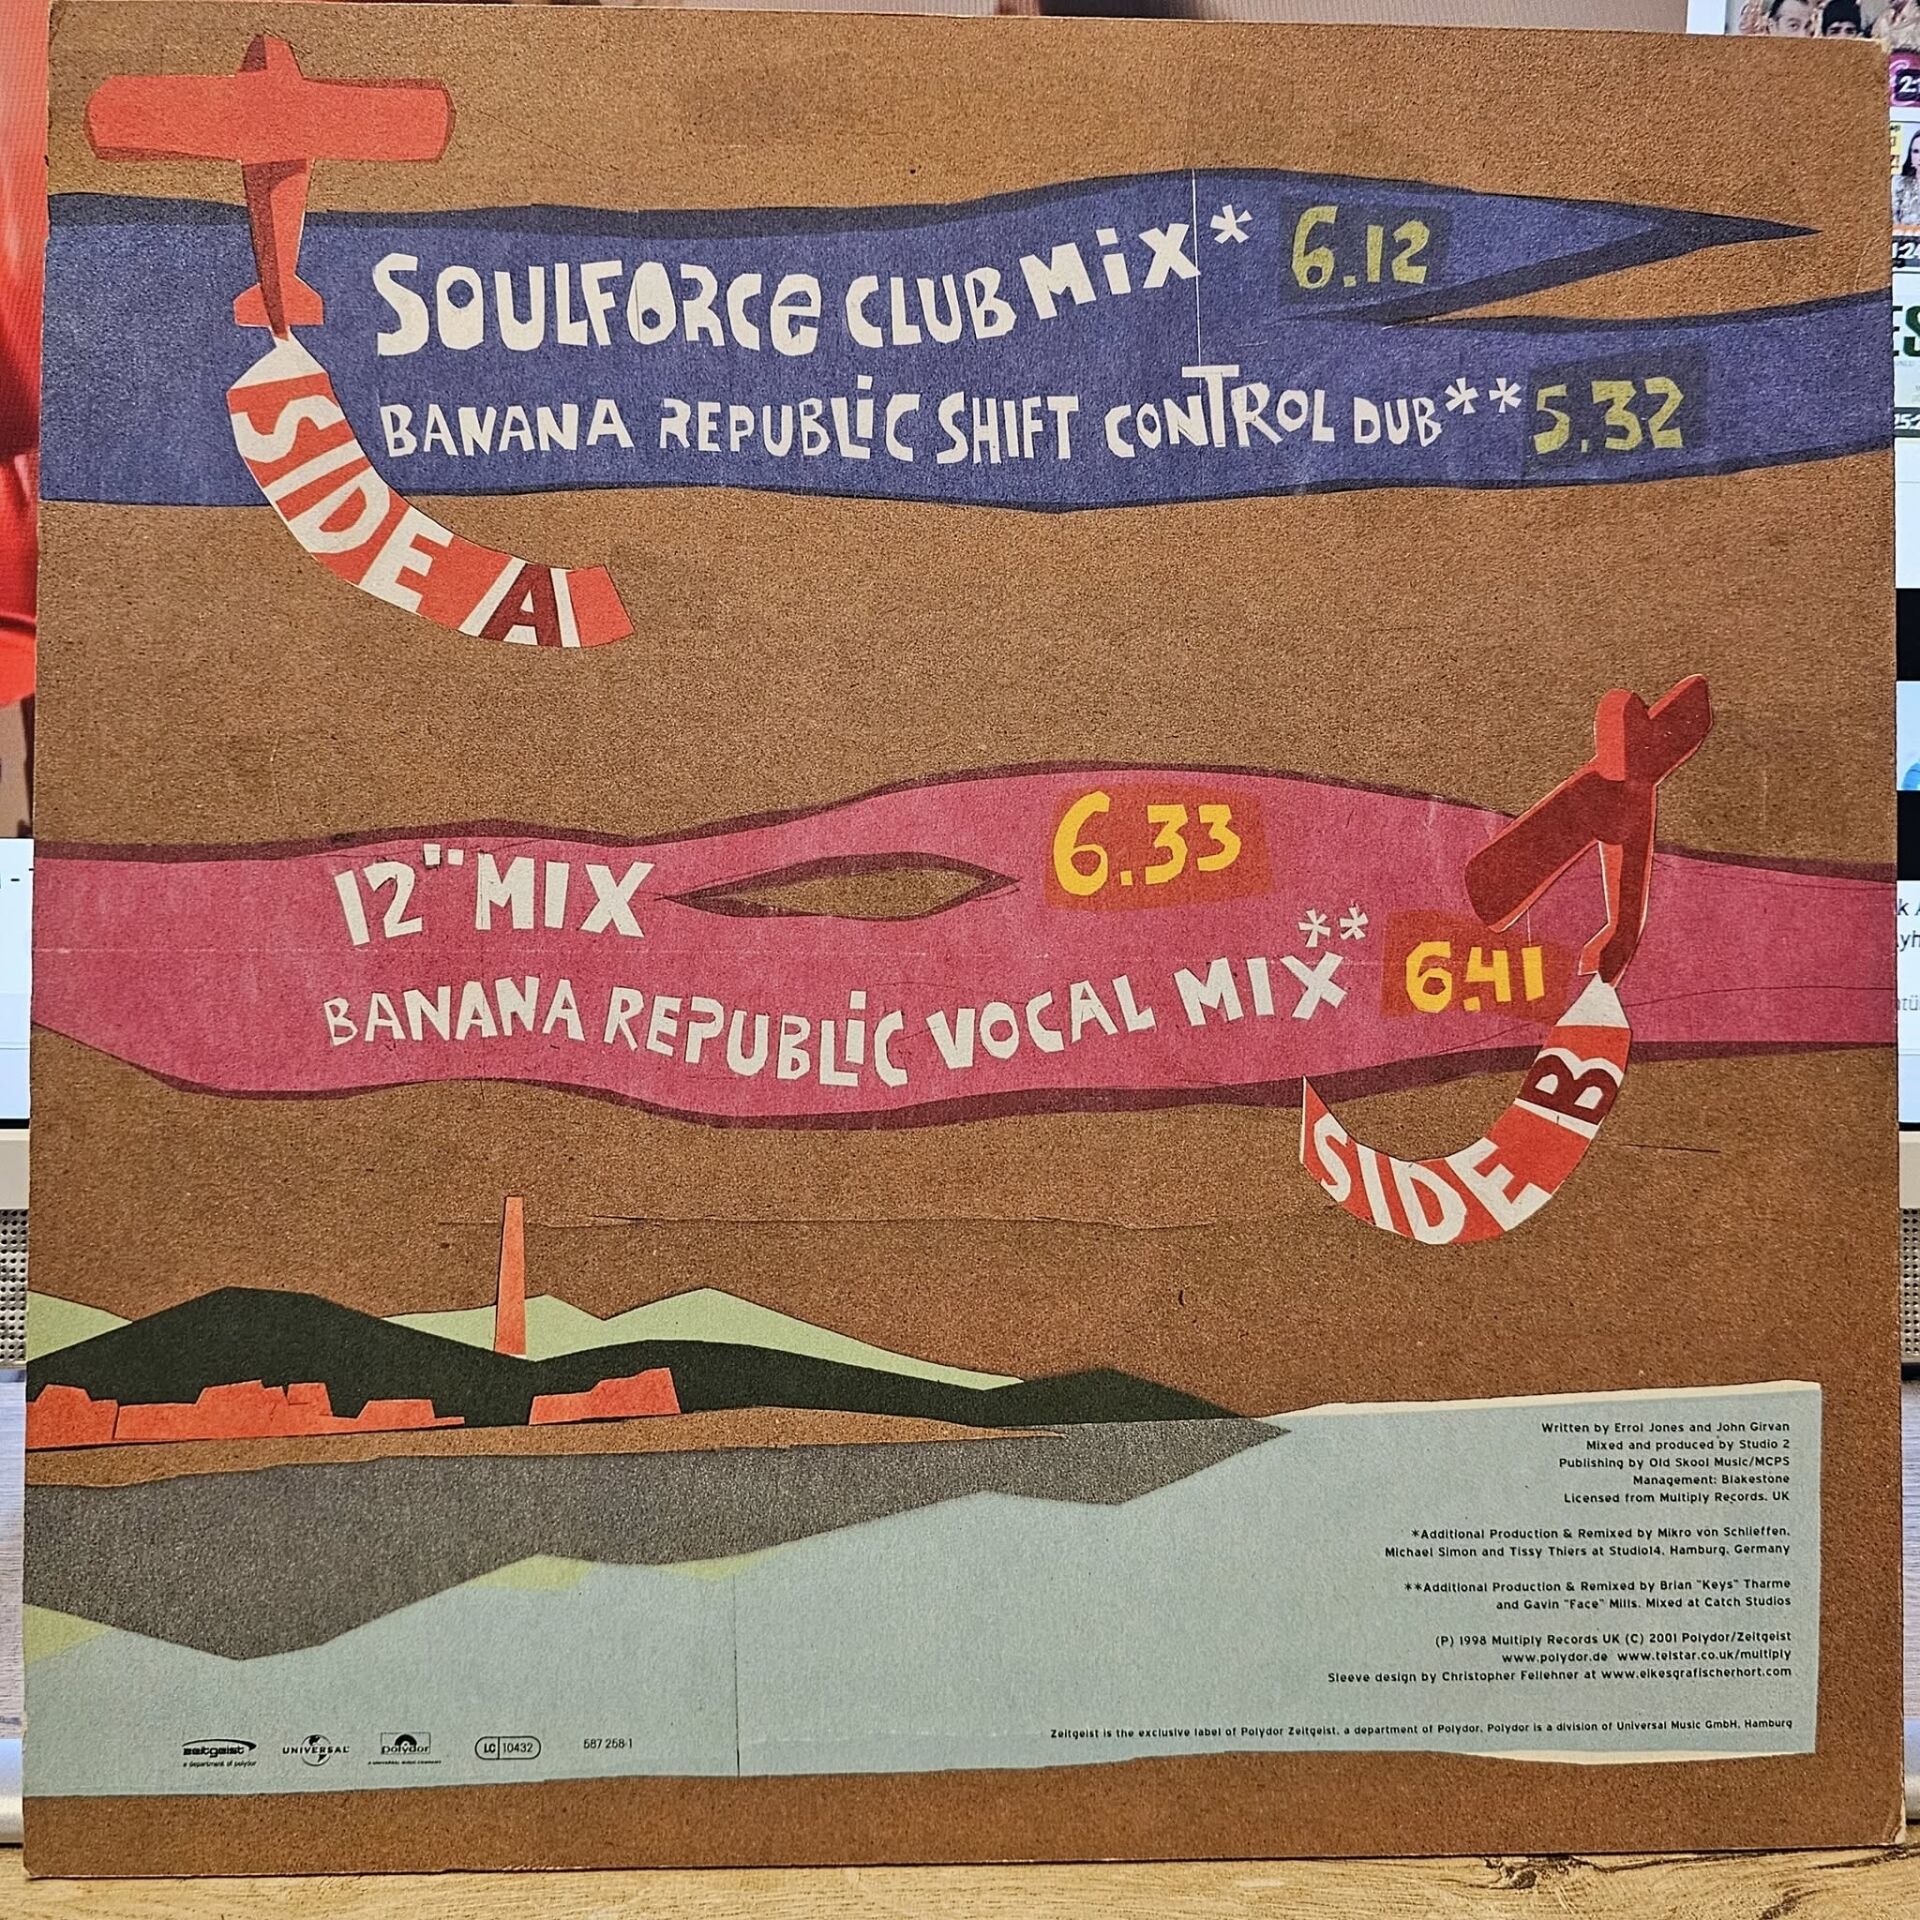 SOULFORCE CLUB MiX* 6.12
BANANA REPUBLiC SHIFT CONTROL DUB** 5.32
SIDE A
12" MIX 6.33
BANANA REPUBLiC VOCAL MIX** 6.41
SIDE B
Written by Errol Jones and John Girvan
Mixed and produced by Studio 2
Publishing by Old Skool Music/MCPS
Management: Blakestone
Licensed from Multiply Records, UK
*Additional Production & Remixed by Mikro von Schlieffen,
Michael Simon and Tissy Thiers at Studio14, Hamburg, Germany
**Additional Production & Remixed by Brian "Keys" Tharme
and Gavin "Face" Mills. Mixed at Catch Studios
(P) 1998 Multiply Records UK (C) 2001 Polydor/Zeitgeist
www.polydor.de www.telstar.co.uk/multiply
Sleeve design by Christopher Fellehner at www.eikesgrafischerhort.com
Zeitgeist is the exclusive label of Polydor Zeitgeist, a department of Polydor. Polydor is a division of Universal Music GmbH, Hamburg
zeitgeist
a department of polydor
UNIVERSAL
polydor
A UNIVERSAL MUSIC COMPANY
LC 10432
587 268-1